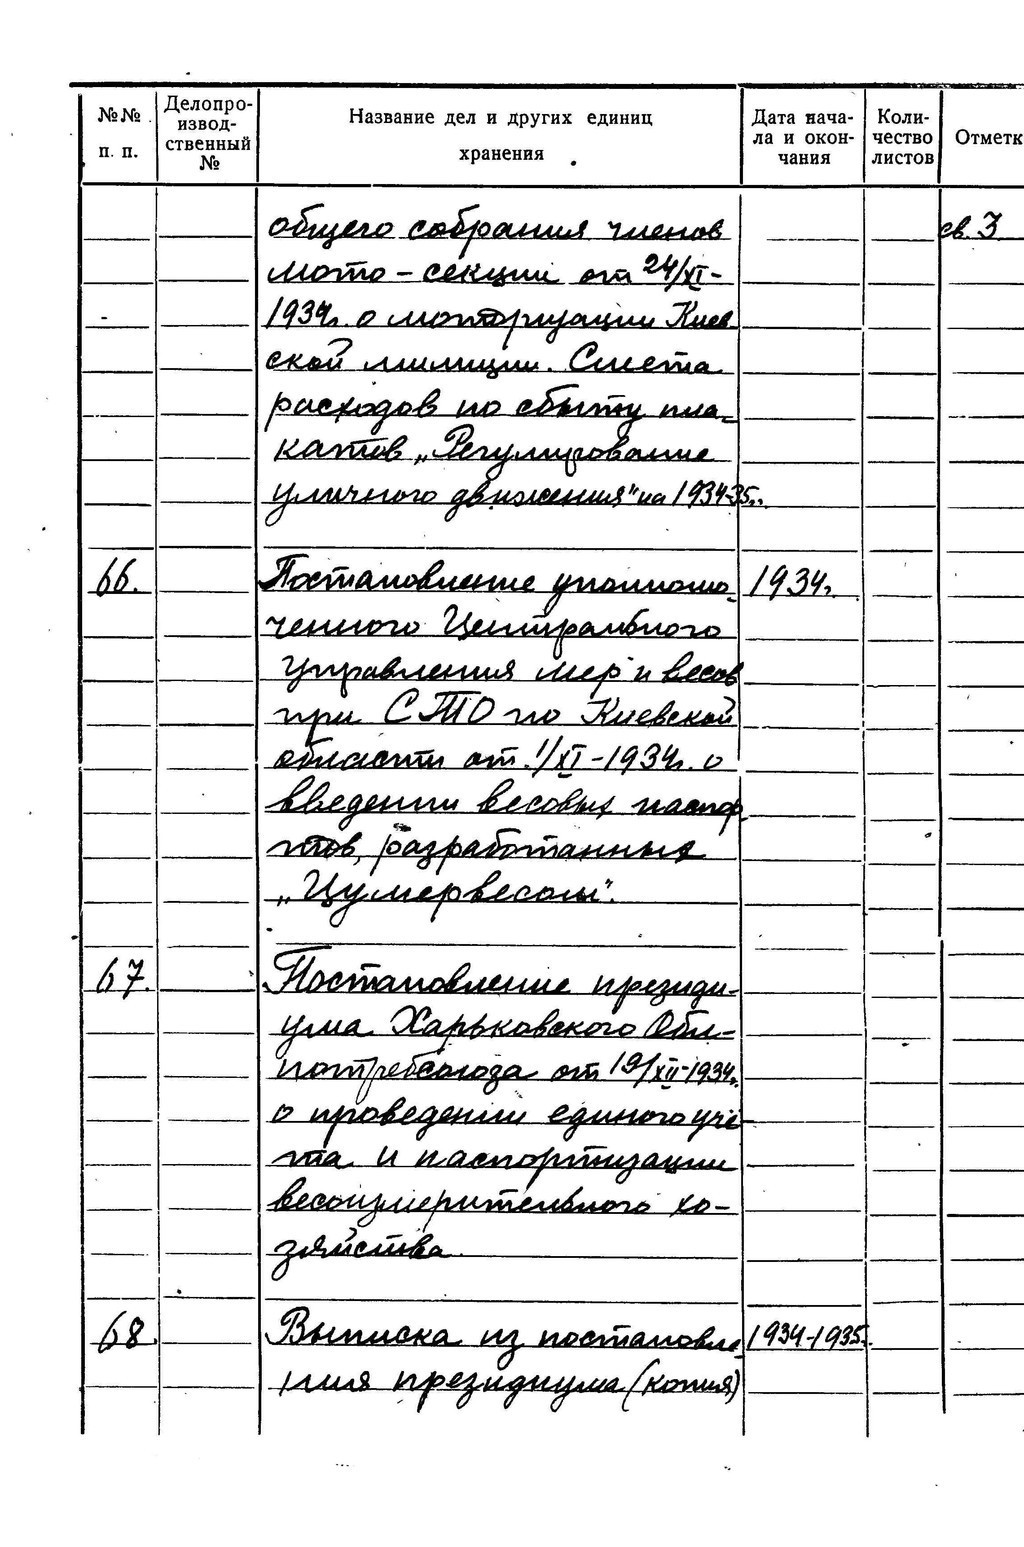 №№ п. п.
Делопроизвод-
ственный №
Название дел и других единиц
хранения
Дата нача-
ла и окон-
чания
Коли-
чество
листов
Отметк
общего собрания членов
св. 3
мото-секции от 24/XI-
1934г. о моторизации Киев
ской милиции. Смета
расходов по сбыту пла-
катов „Регулирование
уличного движения" на 1934-35г.
66.
Постановление уполномо-
1934г.
ченного Центрального
управления мер и весов
при СТО по Киевской
области от 1/XI-1934г. о
введении весовых паспор
тов, разработанных
„Цумервесом".
67.
Постановление президи-
ума Харьковского Обл-
потребсоюза от 19/XII-1934г.
о проведении единого учё-
та и паспортизации
весоизмерительного хо-
зяйства
68.
Выписка из постановле-
1934-1935г.
ния президиума (копия)